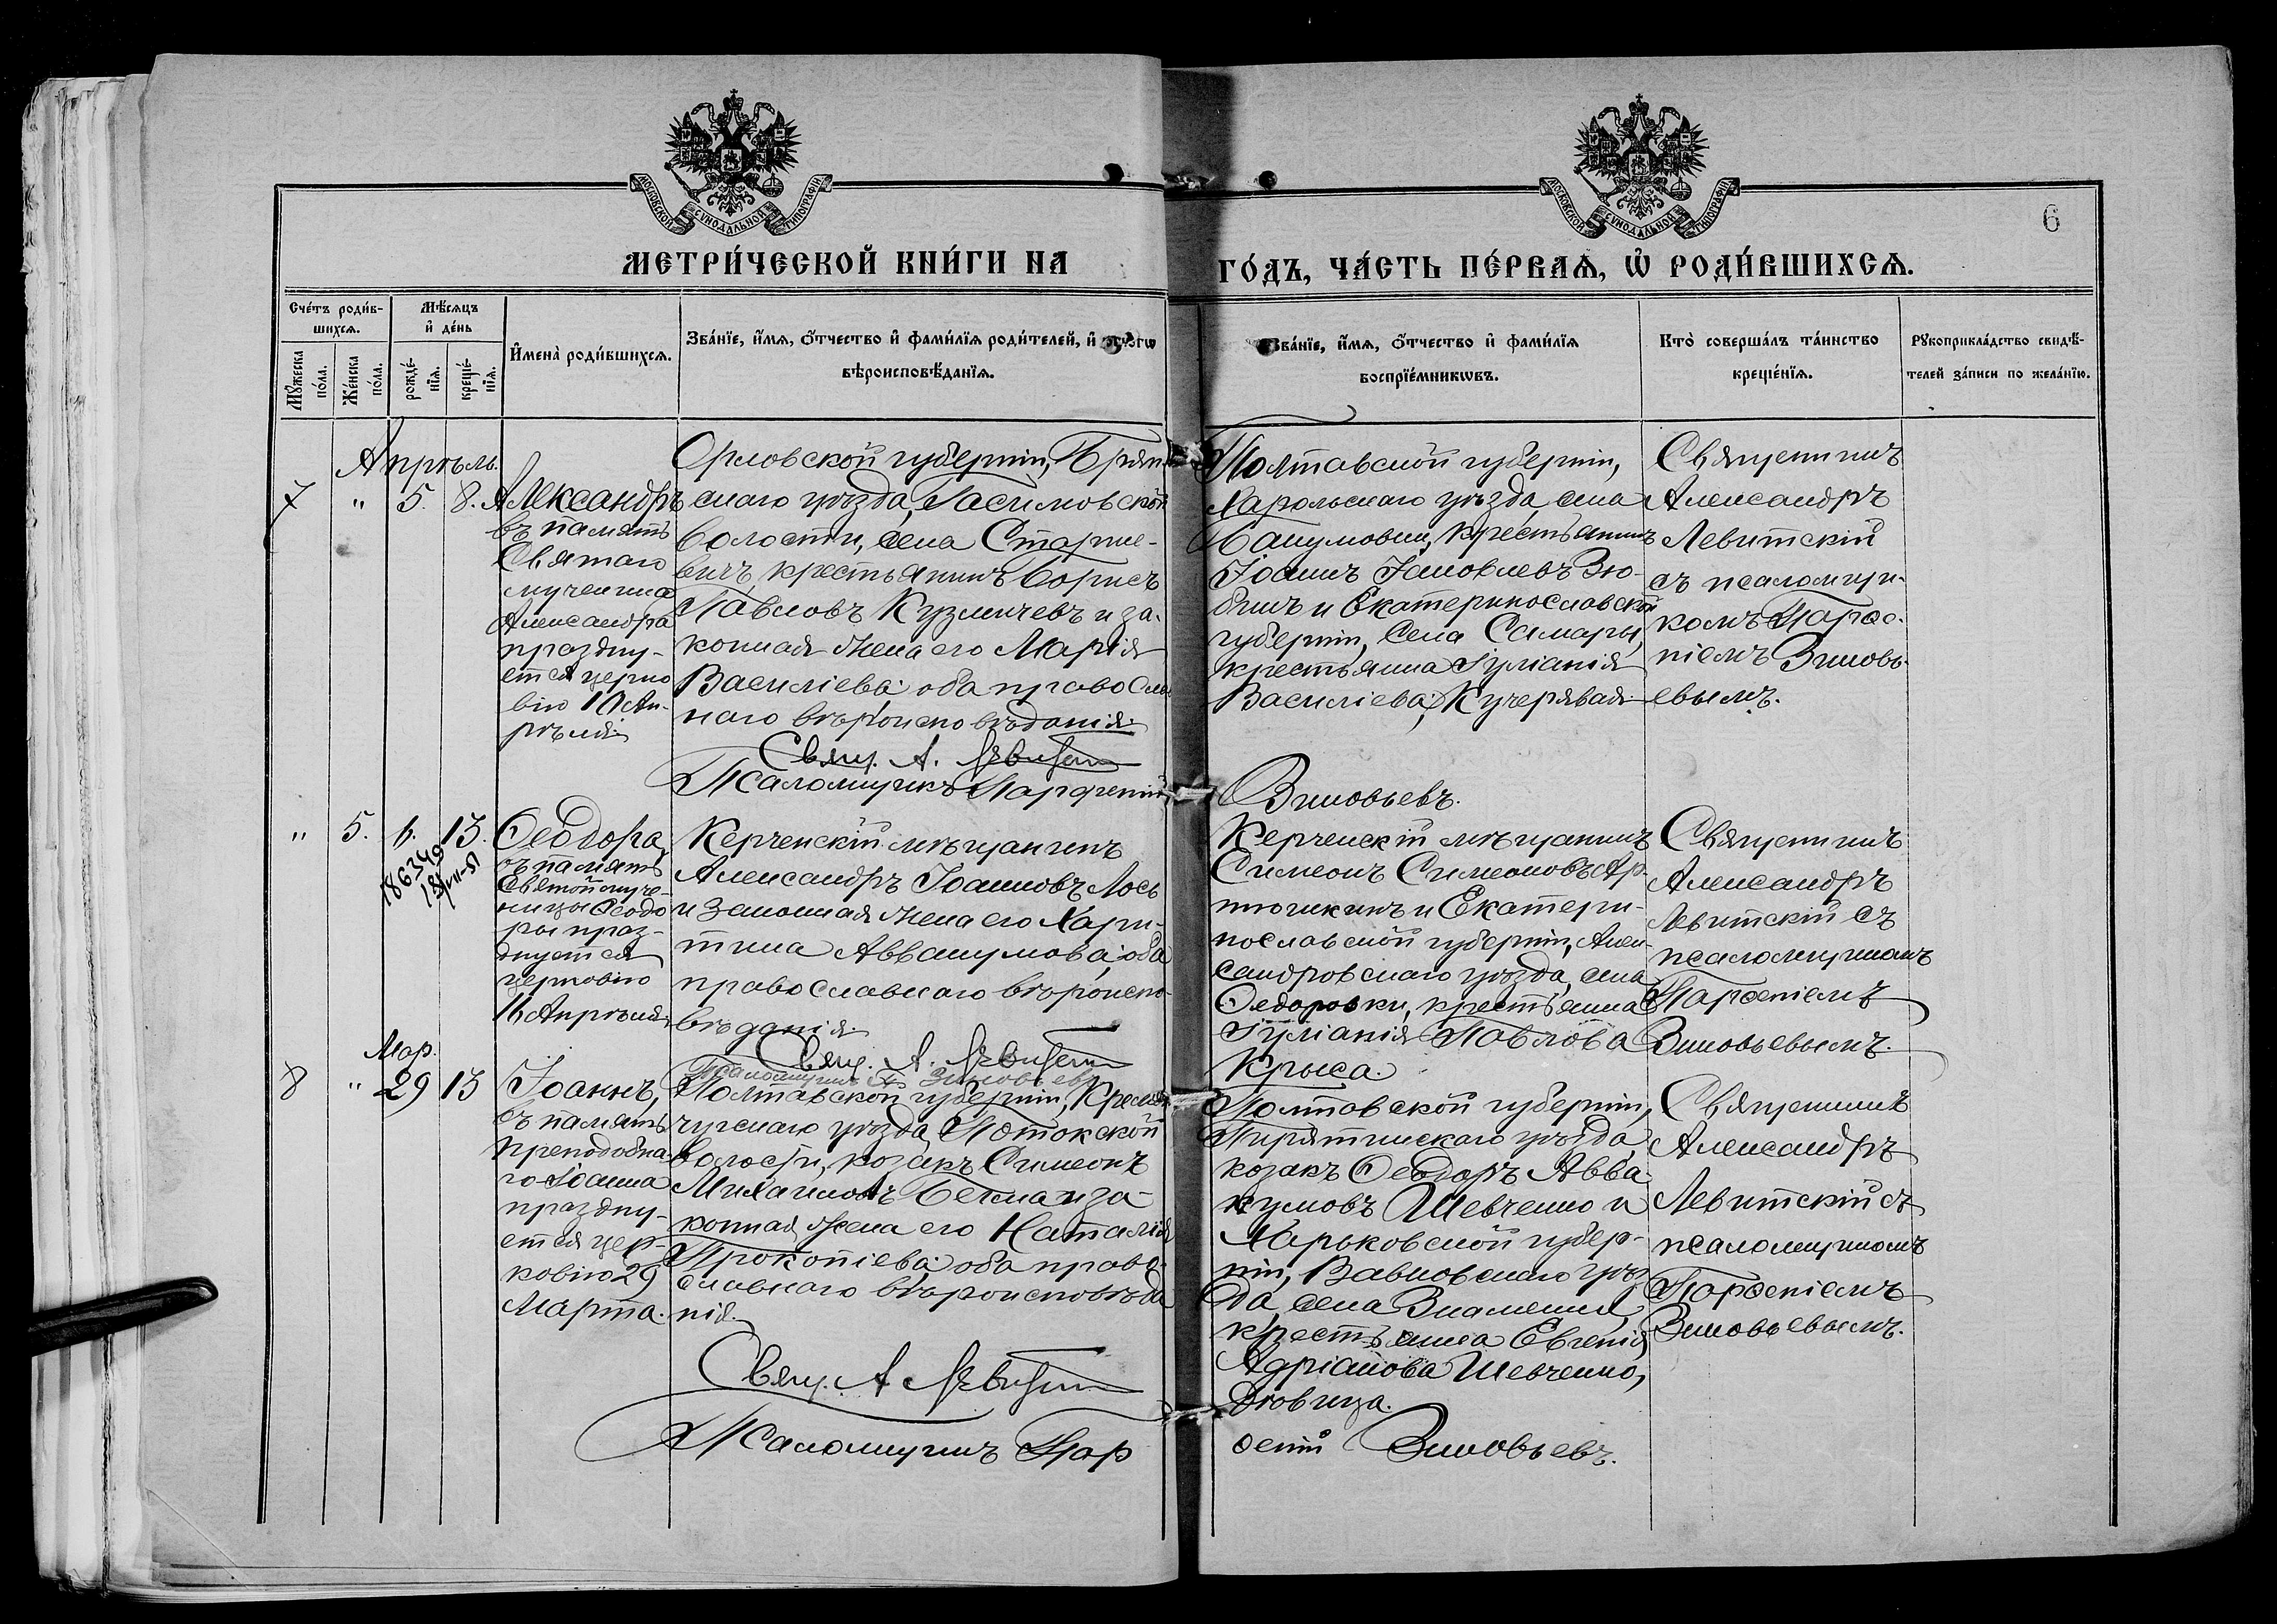 МОСКОВСКОЙ СѴНОДАЛЬНОЙ ТИПОГРАФІИ
МОСКОВСКОЙ СѴНОДАЛЬНОЙ ТИПОГРАФІИ
6
МЕТРИ́ЧЕСКОЙ КНИ́ГИ НА
ГО́ДЪ, ЧА́СТЬ ПЕ́РВАѦ, Ѡ҆ РОДИ́ВШИХСѦ.
Сче́тъ роди́в-
шихсѧ.
Мꙋ́жеска
по́ла.
Же́нска
по́ла.
Мѣ́сѧцъ
и҆ де́нь
рожде́-
нїѧ.
креще́-
нїѧ.
И҆мена̀ роди́вшихсѧ.
Зва́нїе, и҆́мѧ, ѻ҆́тчество и҆ фами́лїѧ роди́телей, и҆
вѣроисповѣ́данїѧ.
Зва́нїе, и҆́мѧ, ѻ҆́тчество и҆ фами́лїѧ
воспрїе́мникѡвъ.
Кто̀ соверша́лъ та́инство
креще́нїѧ.
Рꙋкоприкла́дство свидѣ́-
телей за́писи по жела́нїю.
Апрѣль.
7 " 5. 8.
Александръ
въ память
Святаго
мученика
Александра
праздну-
ется церко
вію 10 Ап-
рѣля.
Орловской губерніи, Брян
скаго уѣзда,
волости, села
крестьянинъ Борисъ
Павловъ Кузмичевъ и за-
конная жена его Марія
Василіева; оба православ
наго вѣроисповѣданія.
Свящ. А. Левитск
Псаломщикъ Парфеній
Полтавской губерніи,
Харольскаго уѣзда, села
крестьянинъ
Іоаннъ Іаковлевъ Зю-
бинъ и Екатеринославской
губерніи, села Самары,
крестьянка Іуліанія
Василіева, Кучерявая.
Зиновьевъ.
Священникъ
Александръ
Левитскій
съ псаломщи-
комъ Парѳе-
ніемъ Зиновь-
евымъ.
" 5. 6. 13.
Ѳеодора,
въ память
Святой муче-
ницы Ѳеодо
ры праз-
днуется
церковію
16 Апрѣля.
Керченскій мѣщанинъ
Александръ Іоанновъ Лось
и законная жена его Хари-
тина Аввакумова; оба
православнаго вѣроиспо-
вѣданія.
Свящ. А. Левитск
Псаломщикъ П. Зиновьевъ
Керченскій мѣщанинъ
Симеонъ Симеоновъ Ар-
тюхинъ и Екатери-
нославской губерніи, Алек-
сандровскаго уѣзда, села
Ѳедоровки, крестьянка
Іуліанія Павлова
Крыса.
Священникъ
Александръ
Левитскій съ
псаломщикомъ
Парѳеніемъ
Зиновьевымъ.
Мар.
8 " 29 13
Іоаннъ,
въ память
преподобна-
го Іоанна
праздну-
ется цер-
ковію 29
Марта.
Полтавской губерніи, Кремен
чугскаго уѣзда, Потокской
волости, козакъ Симеонъ
Михаиловъ и за-
конная жена его Наталія
Прокопіева; оба право-
славнаго вѣроисповѣда
нія.
Свящ. А Левитск
Псаломщикъ Пар
Полтавской губерніи,
Пирятинскаго уѣзда,
козакъ Ѳеодоръ Авва-
кумовъ Шевченко и
Харьковской губер-
ніи, Валковскаго уѣз
да, села Знаменки,
крестьянка Евгенія
Адріанова Шевченко,
дѣвица.
ѳеній Зиновьевъ.
Священникъ
Александръ
Левитскій съ
псаломщикомъ
Парѳеніемъ
Зиновьевымъ.